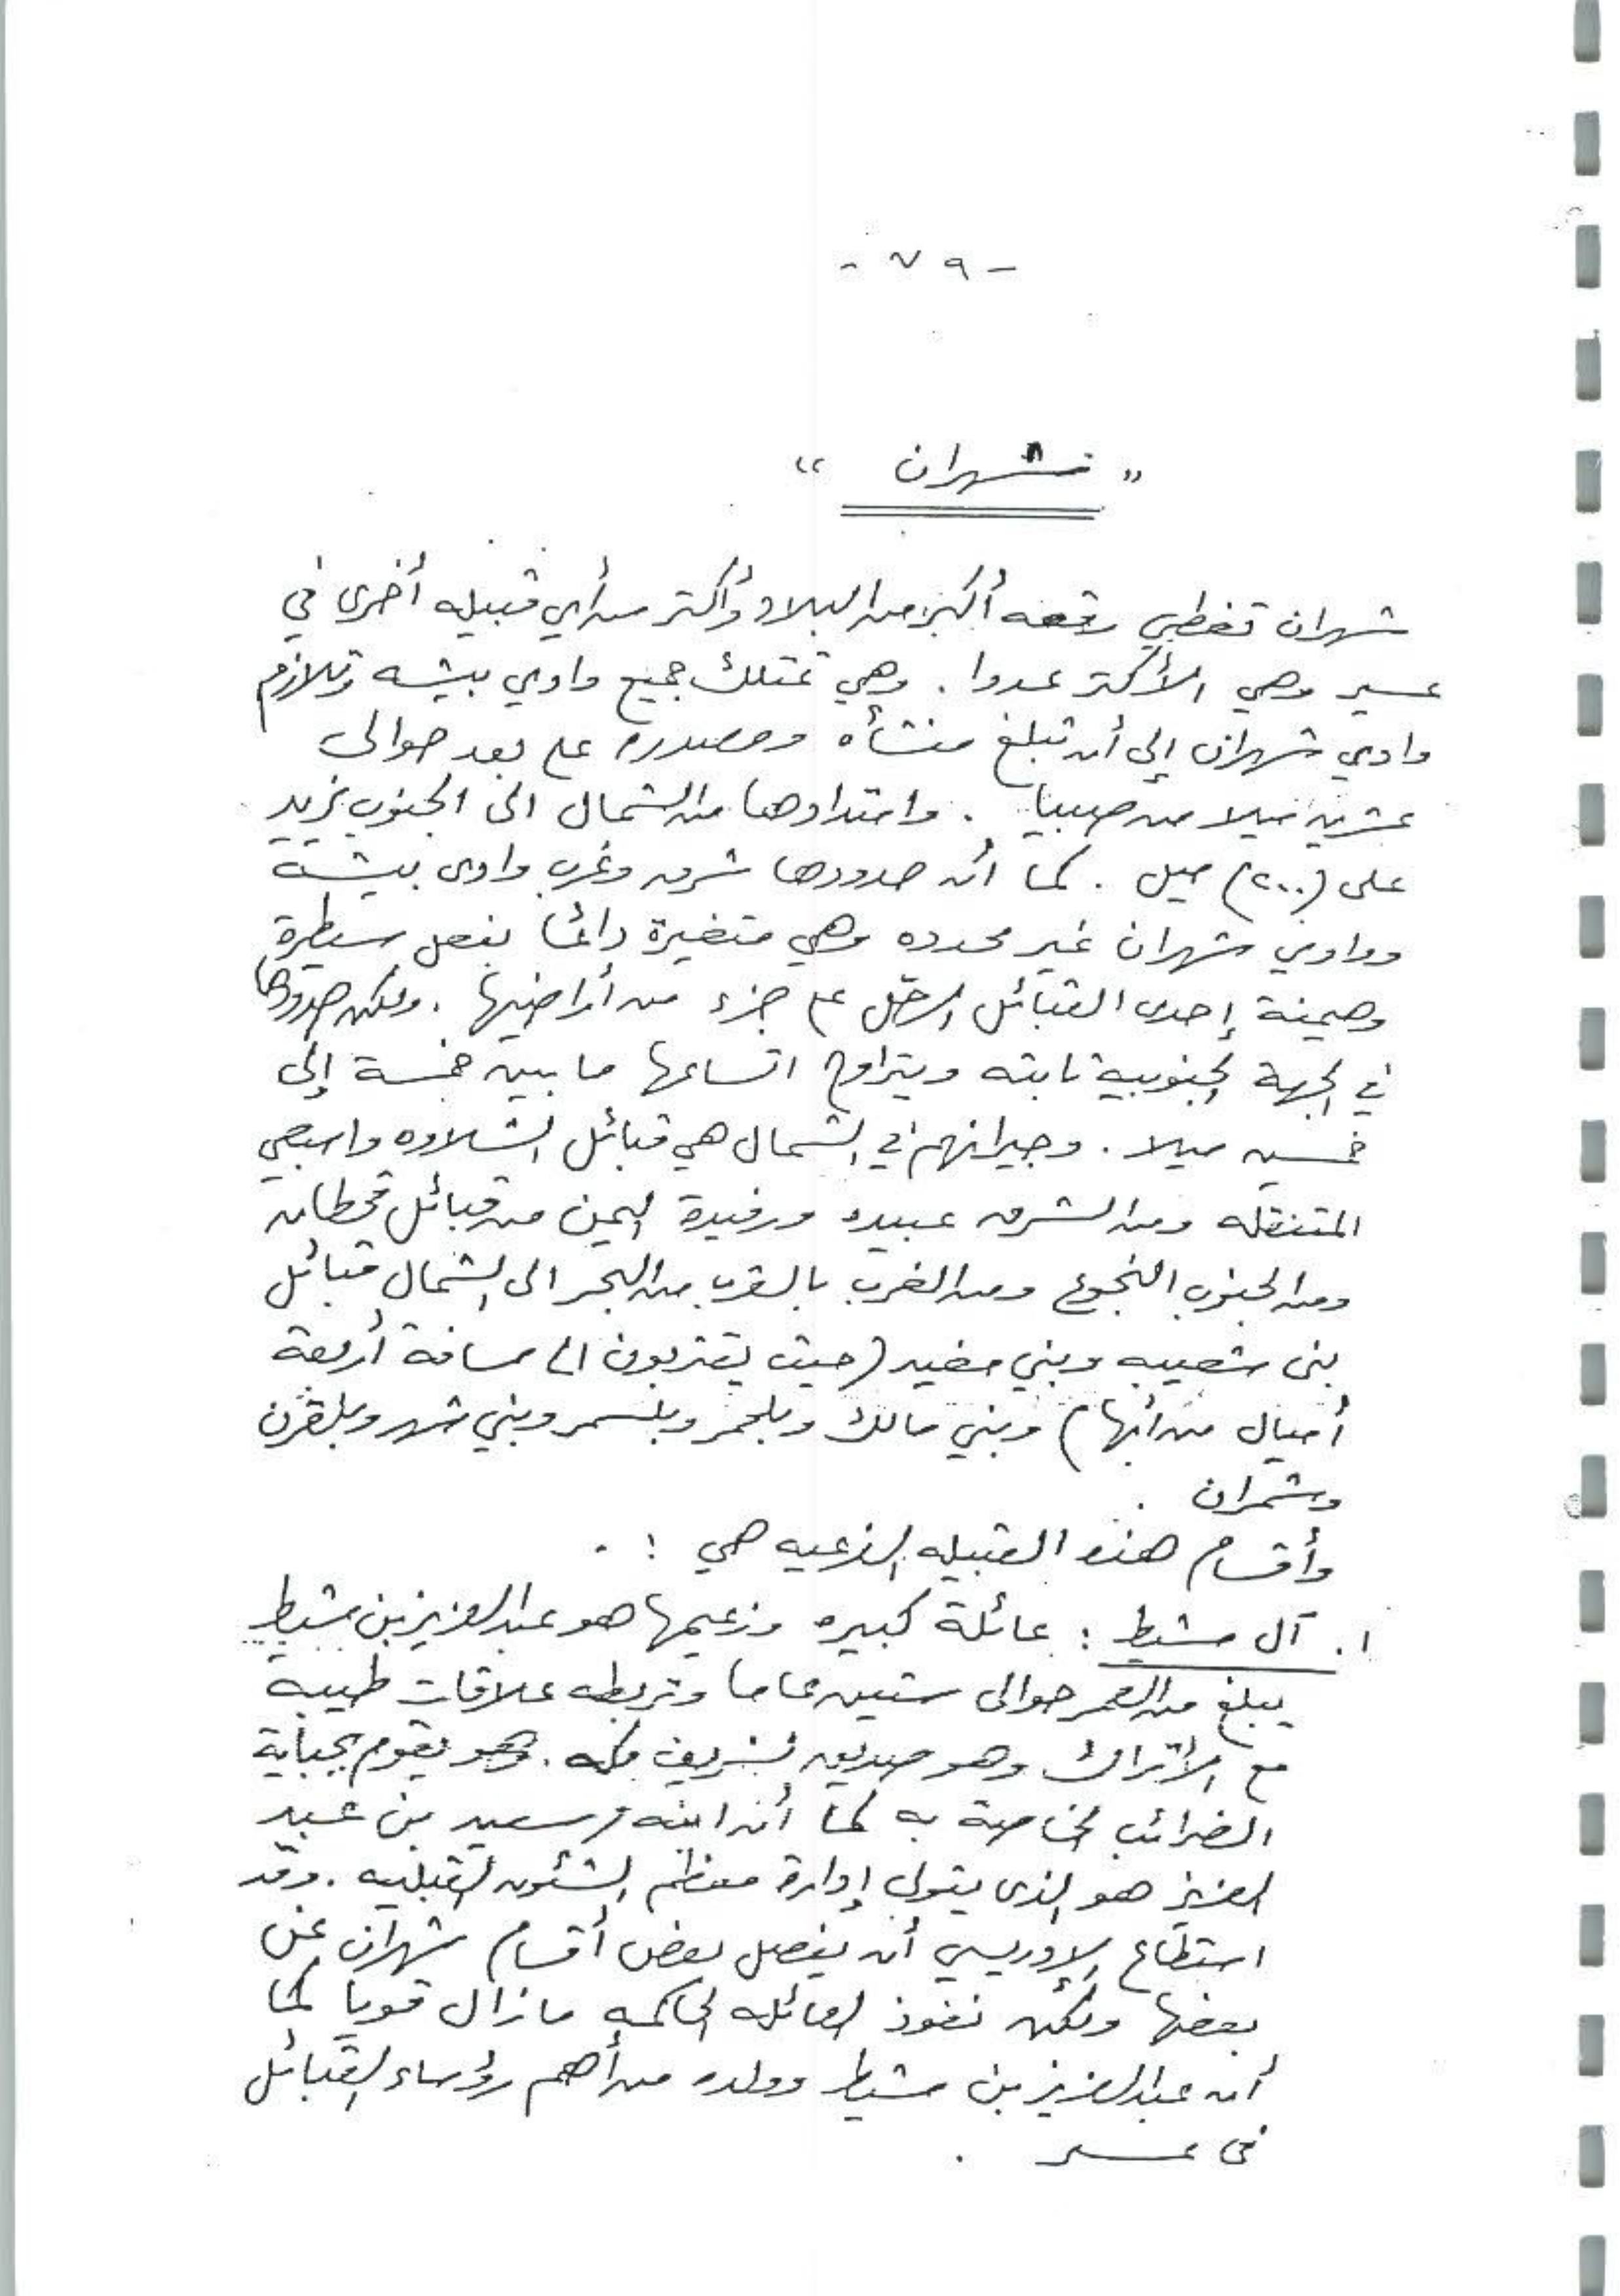 - ٧٩ -
" شهران "
شهران تغطي رقعه أكبر من البلاد وأكثر من أي قبيله أخرى في
عسير وهي الأكثر عددا . وهي تمتلك جميع وادي بيشه وتلازم
وادي شهران إلى أن تبلغ منشأه ومصدره على بعد حوالى
عشرين ميلا من صبيا . وامتدادها من الشمال الى الجنوب يزيد
على (٢٠٠) ميل . كما أن حدودها شرق وغرب وادى بيشة
ووادي شهران غير محدده وهي متغيرة دائما بفعل سيطرة
وهيمنة إحدى القبائل الرحّل على جزء من أراضيها . ولكن حدودها
في الجهة الجنوبية ثابته ويتراوح اتساعها ما بين خمسة إلى
خمسين ميلا . وجيرانهم في الشمال هي قبائل الشلاوه واسبعي
المتنقله ومن الشرق عبيده ورفيدة اليمن من قبائل قحطان
ومن الجنوب النجوع ومن الغرب بالقرب من البحر الى الشمال قبائل
بنى شعيبه وبني مغيد (حيث يقتربون الى مسافة أربعة
أميال من أبها) وبني مالك وبلحمر وبلسمر وبني شهر وبلقرن
وشمران .
وأقسام هذه القبيله الفرعيه هي : -
١. آل مشيط : عائلة كبيره وزعيمها هو عبدالعزيز بن مشيط
يبلغ من العمر حوالى ستين عاما وتربطه علاقات طيبه
مع الأتراك وهو صديق لشريف مكه . وهو يقوم بجباية
الضرائب الخاصة به كما أن ابنه سعيد بن عبد
العزيز هو الذى يتولى إدارة معظم الشئون القبليه . وقد
استطاع الإدريسي أن يفصل بعض أقسام شهران عن
بعضها ولكن نفوذ العائله الحاكمه مازال قويا كما
أن عبدالعزيز بن مشيط وولده من أهم رؤساء القبائل
فى عسير .